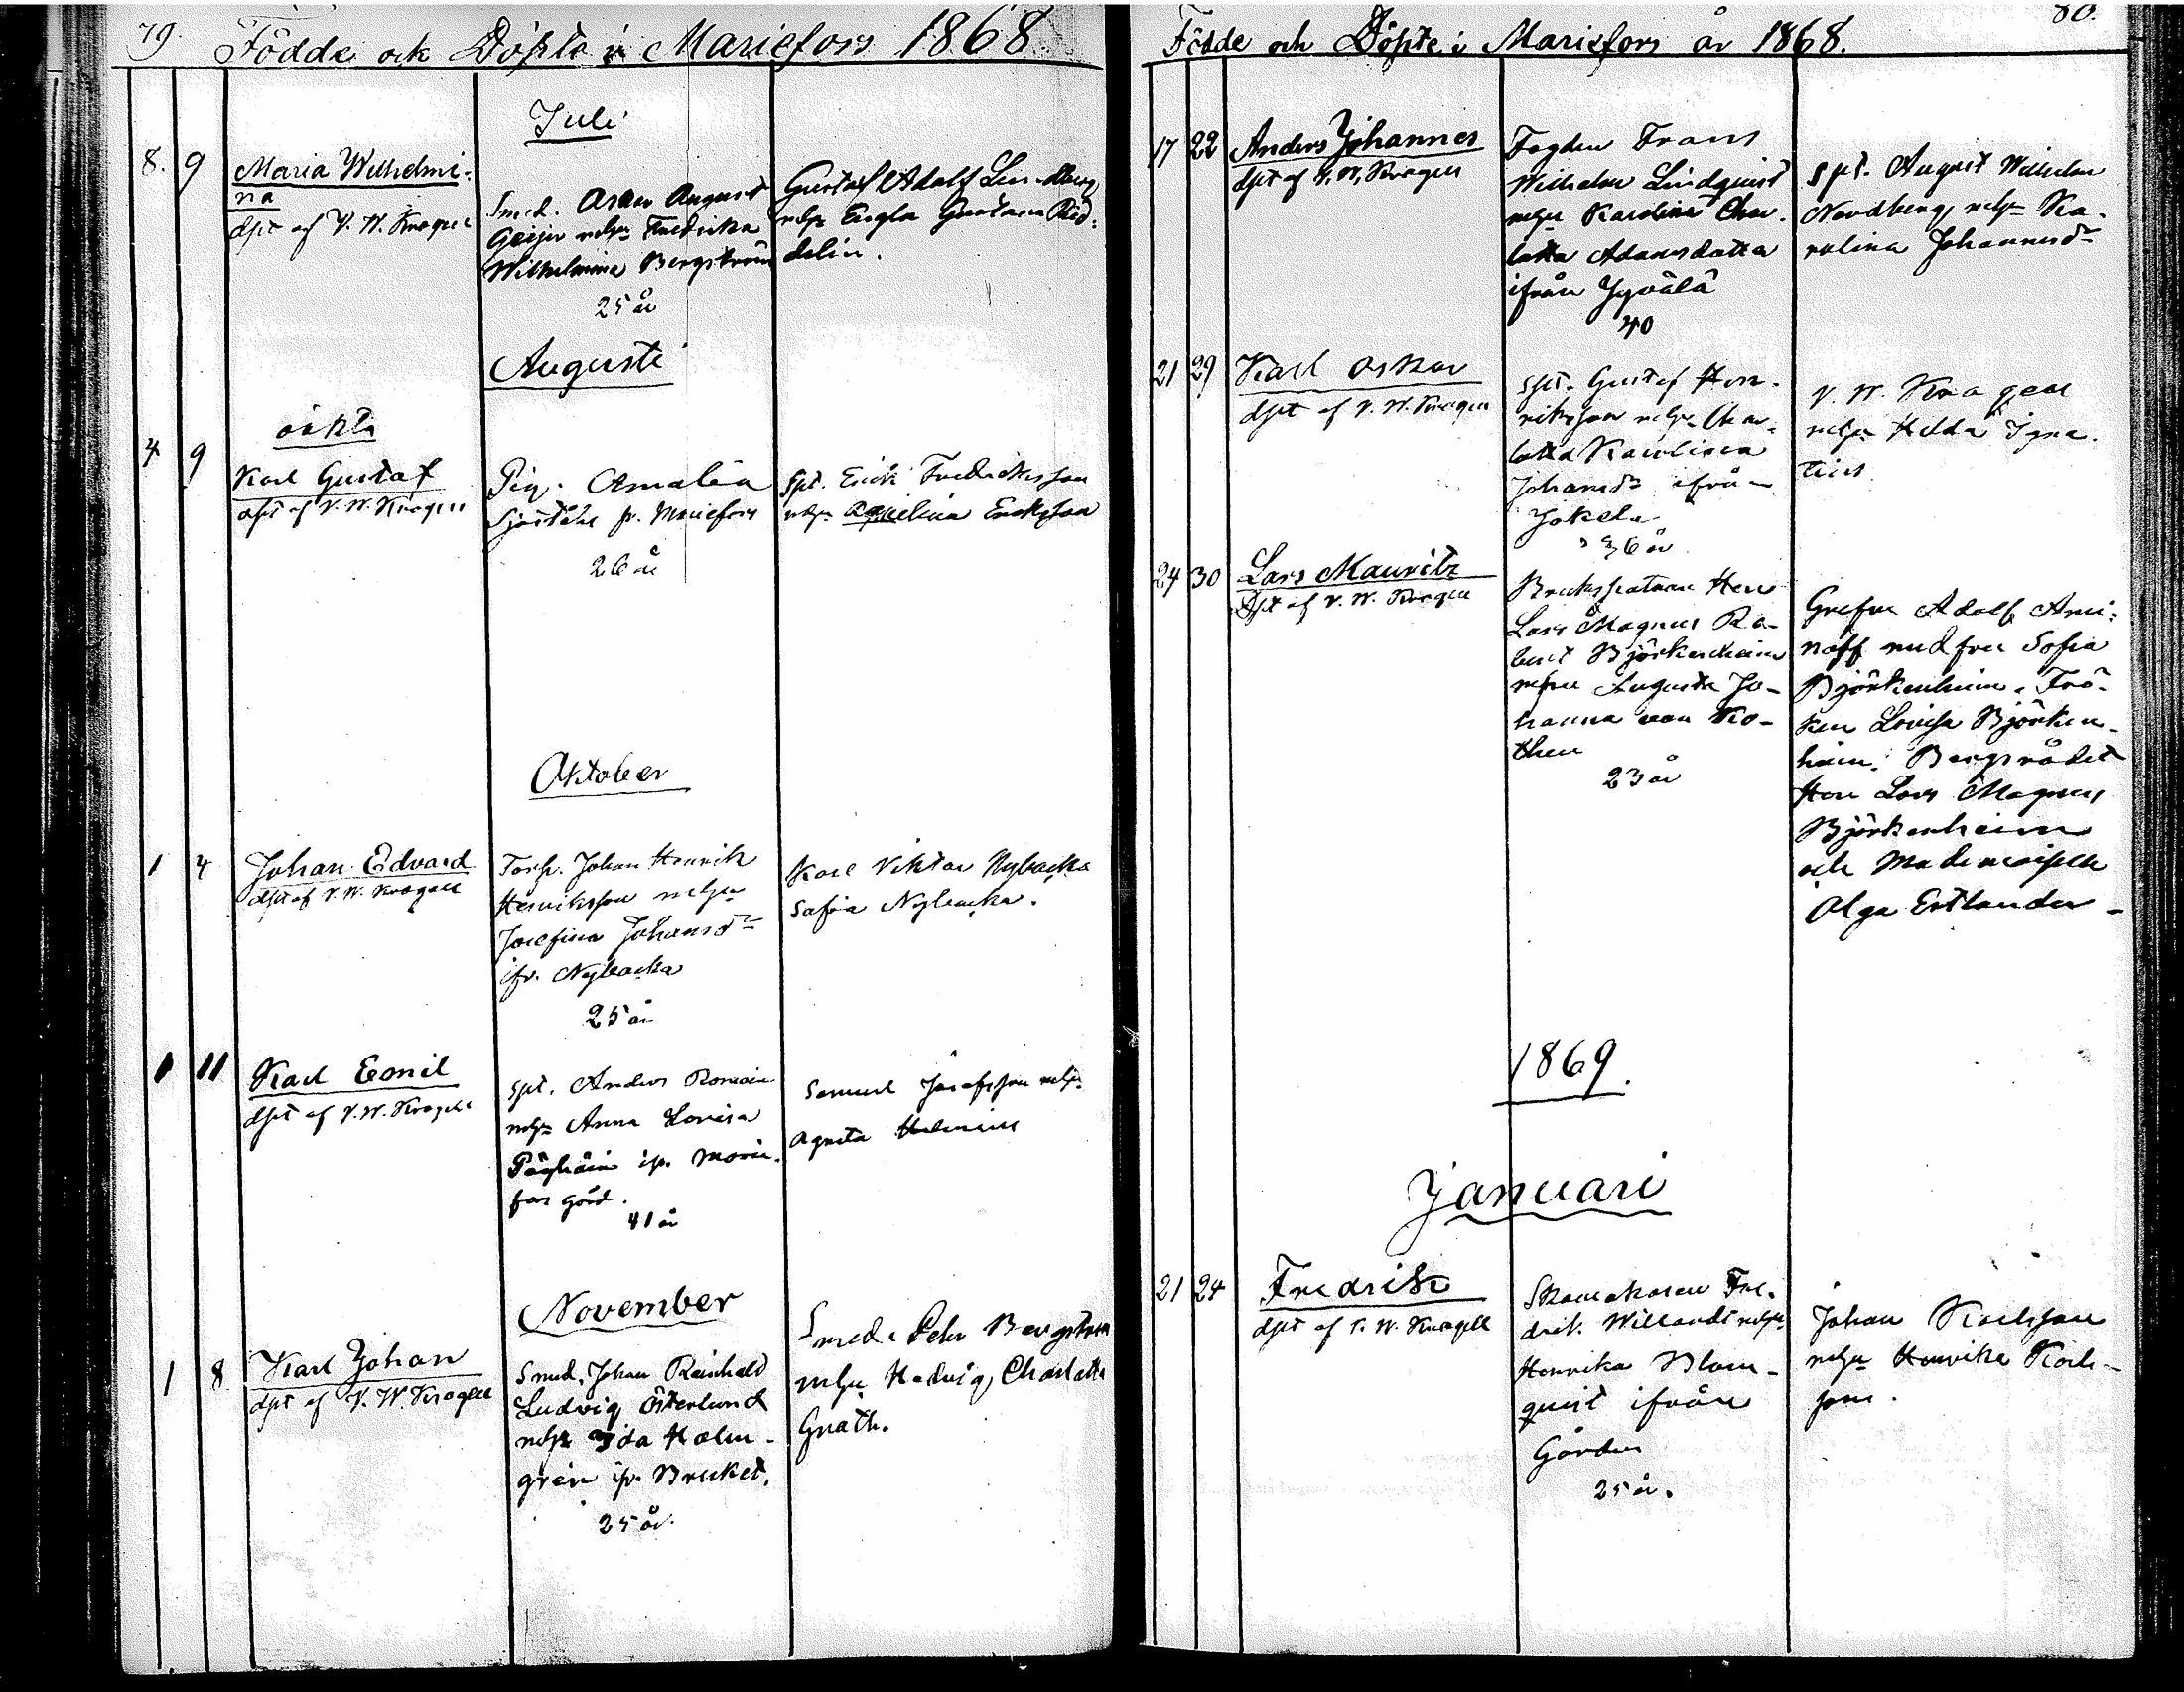 79. Födde och Döpte i Mariefors 1868.
Juli
8. 9 Maria Wilhelmi-
na
dpt af V. W. Kragell
Smed. Oskar August
Geijer m hu Fredrika
Wilhelmina Bergström
25 år
Gustaf Adolf Lundberg
m hu Engla Gustava
delin.
Augusti
oäkta
4 9 Karl Gustaf
dpt af V. W. Kragell
Pig. Amalia
Sjöståhl fr. Mariefors
26 år
Spt. Erick Fredriksson
m hu Aqvilina Eriksson
Oktober
1 4 Johan Edvard
dpt af V. W. Kragell
Torp. Johan Henrik
Henriksson m hu
Josefina Johansdr
ifr. Nybacka
25 år
Karl Viktor Nybacka
Sofia Nybacka.
1 11 Karl Emil
dpt af V. W. Kragell
Spt. Anders
m hu Anna Lovisa
ifr. Marie-
fors gård.
41 år
Samuel Josefsson m hu
Agneta
November
1 8 Karl Johan
dpt af V. W. Kragell
Smed. Johan Reinhold
Ludvig Österlund
m hu Ida Holm-
grén ifr. Bruket.
25 år.
Smed. Pehr Bergström
m hu Hedvig Charlotta
Gnath.
80.
Födde och Döpte i Mariefors år 1868.
17 22 Anders Johannes
dpt af V. W. Kragell
Fogden Frans
Wilhelm Lindquist
m hu Karolina Char-
lotta Adamsdotta
ifrån Jyvälä
40
Spt. August Wilhelm
Nordberg m hu Ka-
rolina Johannesdr
21 29 Karl Oskar
dpt af V. W. Kragell
Spt. Gustaf Hen-
riksson m hu Char-
lotta Karolina
Johansdr ifrån
Jokela
36 år
V. W. Kragell
m hu Hilda Igna-
tius
24 30 Lars Mauritz
dpt af V. W. Kragell
Brukspatron Herr
Lars Magnus Ro-
bert Björkenheim
m fru Augusta Jo-
hanna von Ko-
then
23 år
Grefve Adolf Armi-
noff med fru Sofia
Björkenheim. Frö-
ken Lovisa Björken-
heim. Bergsrådet
Herr Lars Magnus
Björkenheim
och Mademoiselle
Olga Estlander
1869.
Januari
21 24 Fredrik
dpt af V. W. Kragell
Skomakaren Fre-
drik Willandt m hu
Henrika Blom-
quist ifrån
Gården
25 år.
Johan Karlsson
m hu Henrika Karls-
son.